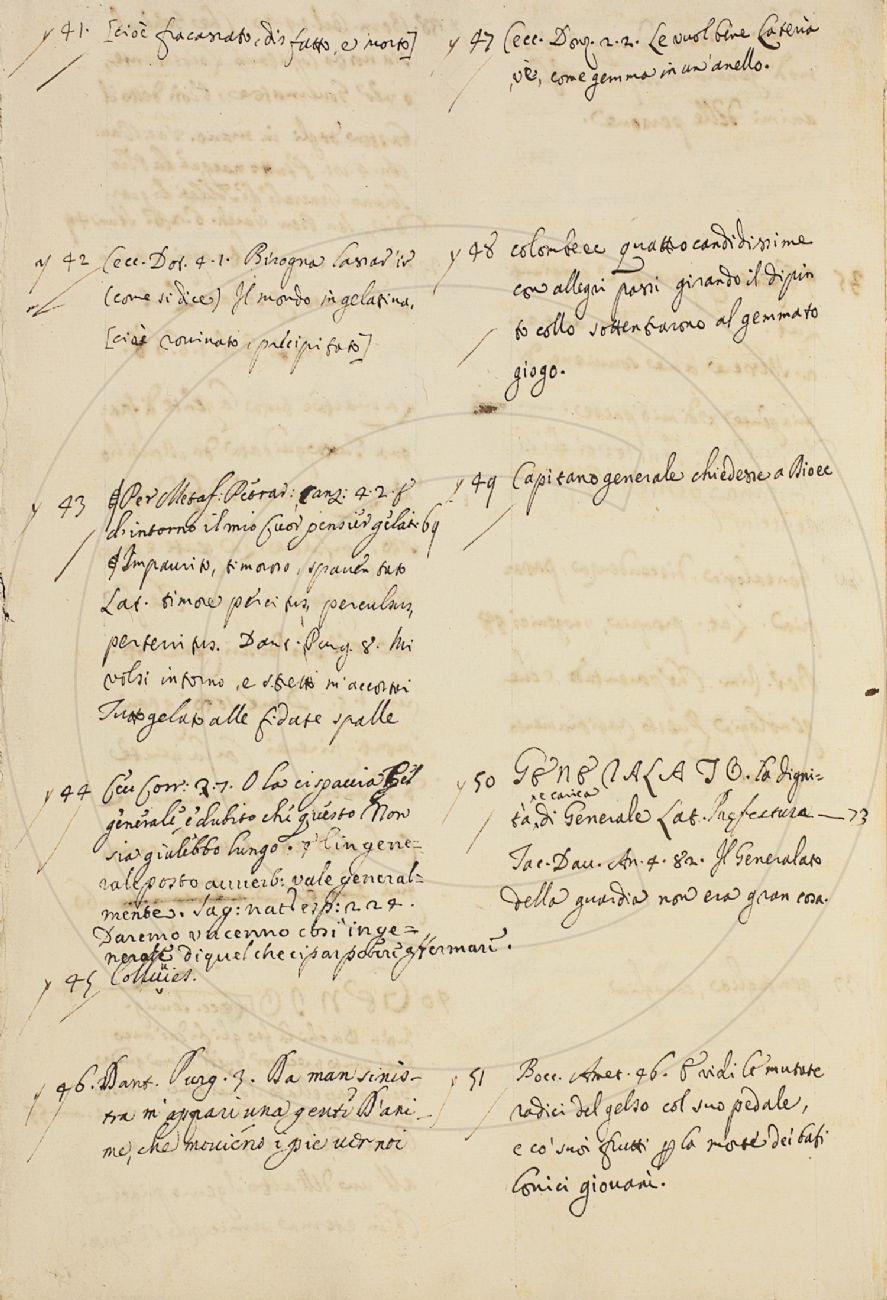 y 41. [cioè fracassato, disfatto, e morto]
y 42 Cecc. Dot. 4. 1. Bisogna lassar ir
(come si dice) Il mondo in gelatina.
[cioè rovinato, precipitato]
y 43 § Per Metaf: Petrar: Canz: 4. 2. E
d'intorno il mio Cuor pensier gelati 69
§ Impaurito, timoroso, spaventato
Lat. timore percitus, perculsus,
perterritus. Dant. Purg. 8. Mi
volsi intorno, e stretto m'accostai
Tutto gelato alle fidate spalle
y 44 Cecc. Corr: 2. 7. O la ci spaccia
generale, e dubito che questo Non
sia giulebbo lungo. § In gene=
rale posto avverb: vale general=
mente. Sag: nat: esp: 224.
Daremo un cenno così in ge=
nerale di quel che ci par poterne affermare.
y 45 Colluvies.
y 46. Dant. Purg. 3. Da man sinis-
tra m'apparì una gente D'ani-
me, che movieno i pie ver noi
y 47 Cecc. Donz. 2. 2. Le vuol bene Cateria
ve, come gemma in un'anello.
y 48 colombe ec quattro candidissime
con allegri passi girando il dipin
to collo sottentrarono al gemmato
giogo.
y 49 Capitano generale chiedesse a Bioec
y 50 GENERALATO. la digni-
e carica
tà di Generale Lat. Prefectura — 73
Tac. Dav. An. 4. 82. Il Generalato
della guardia non era gran cosa.
y 51 Bocc. Amet. 46. E vidi le mutate
radici del gelso col suo pedale,
e co' suoi frutti p la morte dei babi
lonici giovani.